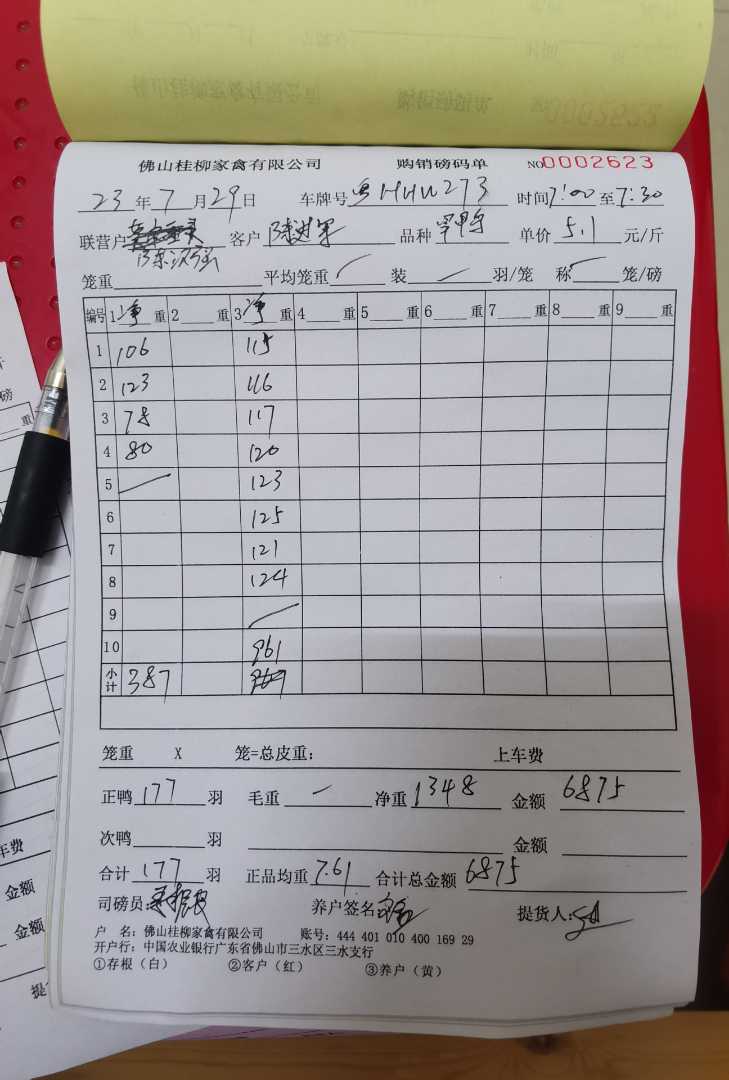 佛山桂柳家禽有限公司 购销磅码单 NO0002623
23年7月29日 车牌号粤HUU273 时间7:00至7:30
联营户 客户陈进军 品种 单价5.1元/斤
笼重 平均笼重 / 装 / 羽/笼 称 / 笼/磅
编号 1净重 2重 3净重 4重 5重 6重 7重 8重 9重
1 106 115
2 123 116
3 78 117
4 80 120
5 / 123
6 125
7 121
8 124
9 /
10 961
小计 387
笼重 X 笼=总皮重: 上车费
正鸭177羽 毛重 / 净重1348 金额6875
次鸭 羽 金额
合计177羽 正品均重7.61 合计总金额6875
司磅员: 养户签名 提货人:
户 名: 佛山桂柳家禽有限公司 账号: 444 401 010 400 169 29
开户行: 中国农业银行广东省佛山市三水区三水支行
①存根(白) ②客户(红) ③养户(黄)